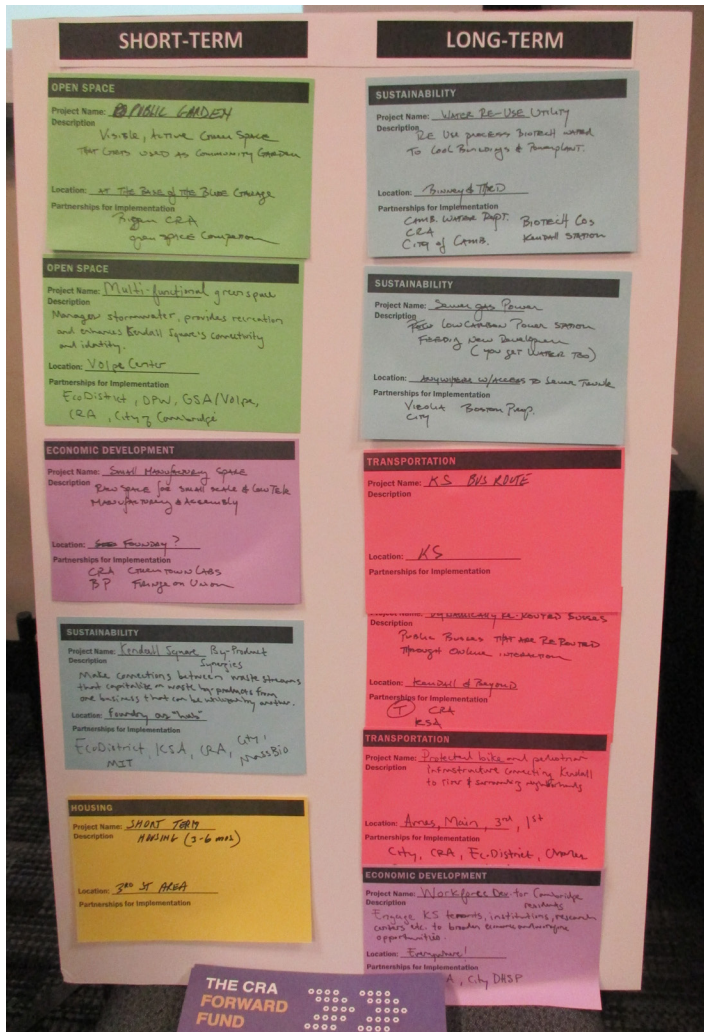 SHORT-TERM
OPEN SPACE
Project Name: PUBLIC GARDEN
Description
Visible, Active Green Space
That Gets used as Community Garden
Location: AT THE BASE of THE BLUE GARAGE
Partnerships for Implementation
CRA
green space
OPEN SPACE
Project Name: Multi-functional greenspace
Description
Manages stormwater, provides recreation
and enhances Kendall Square's connectivity
and identity.
Location: Volpe Center
Partnerships for Implementation
EcoDistrict, DPW, GSA/Volpe,
CRA, City of Cambridge
ECONOMIC DEVELOPMENT
Project Name: Small Manufacturing Space
Description Raw space for small scale & Low Tek
Manufacturing & Assembly
Location: Foundry?
Partnerships for Implementation
CRA Greentown Labs
BP Fringe on Union
SUSTAINABILITY
Project Name: Kendall Square By-Product
Description Synergies
Make connections between waste streams
that capitalize on waste by-products from
one business that can be another.
Location: Foundry as "hub"
Partnerships for Implementation
EcoDistrict, KSA, CRA, City,
MIT MassBio
HOUSING
Project Name: SHORT TERM
Description HOUSING (3-6 mos)
Location: 3RD ST AREA
Partnerships for Implementation
LONG-TERM
SUSTAINABILITY
Project Name: Water Re-Use Utility
Description
Re Use process Biotech water
To Cool Buildings & Powerplant.
Location: Binney & Third
Partnerships for Implementation
Camb. Water Dept. Biotech Cos
CRA Kendall Station
City of Camb.
SUSTAINABILITY
Project Name: Sewer gas Power
Description
Low Carbon Power Station
Feeding New Development
(You get Water Too)
Location: Anywhere w/Access to Sewer Trunk
Partnerships for Implementation
Veolia Boston Prop.
City
TRANSPORTATION
Project Name: KS BUS ROUTE
Description
Location: KS
Partnerships for Implementation
Project Name: Dynamically Re-Routed Busses
Description
Public Busses That Are Re Routed
Through Online interaction
Location: Kendall & Beyond
Partnerships for Implementation
T CRA
KSA
TRANSPORTATION
Project Name: Protected bike and pedestrian
Description infrastructure connecting Kendall
to river & surrounding neighborhoods
Location: Ames, Main, 3rd, 1st
Partnerships for Implementation
City, CRA, Ec-District, Charles
ECONOMIC DEVELOPMENT
Project Name: Workforce Dev for Cambridge
Description residents
Engage KS tenants, institutions, research
centers etc. to broaden economic and workforce
opportunities.
Location: Everywhere!
Partnerships for Implementation
A, City DHSP
THE CRA
FORWARD
FUND